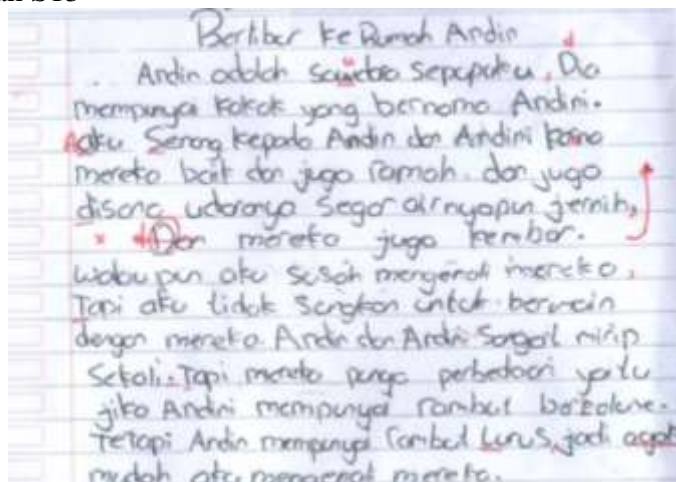 Berlibur ke Rumah Andin
Andin adalah saudara sepupuku, Dia
mempunyai kakak yang bernama Andini.
Aaku Senang kepada Andin dan Andini karna
mereka baik dan juga ramah. dan juga
disana udaranya Segar airnyapun jernih,
Dan mereka juga kembar.
walaupun aku susah mengenali mereka,
Tapi aku tidak sungkan untuk bermain
dengan mereka. Andin dan Andini Sangat mirip
Sekali. Tapi mereka punya perbedaan yaitu
jika Andini mempunyai rambut
Tetapi Andin mempunyai rambut Lurus, jadi agak
mudah aku mengenal mereka.